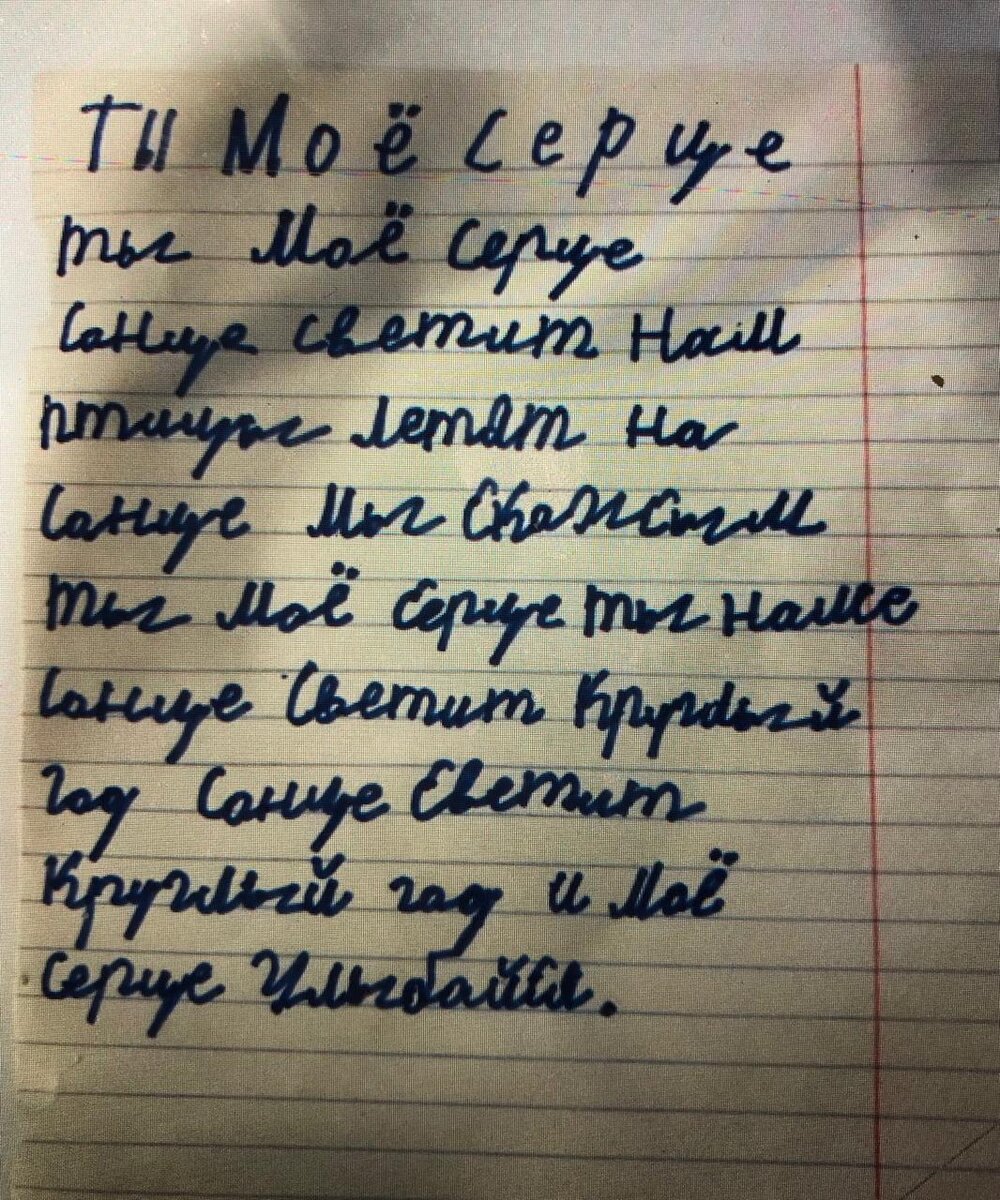 ТЫ Моё Серце
ты Моё Серце
Санце светит Нам
птицы летят На
Санце Мы Скажым
ты Моё Серце ты наше
Санце Светит Круглый
год Санце Светит
Круглый год и Моё
серце Улыбайся.